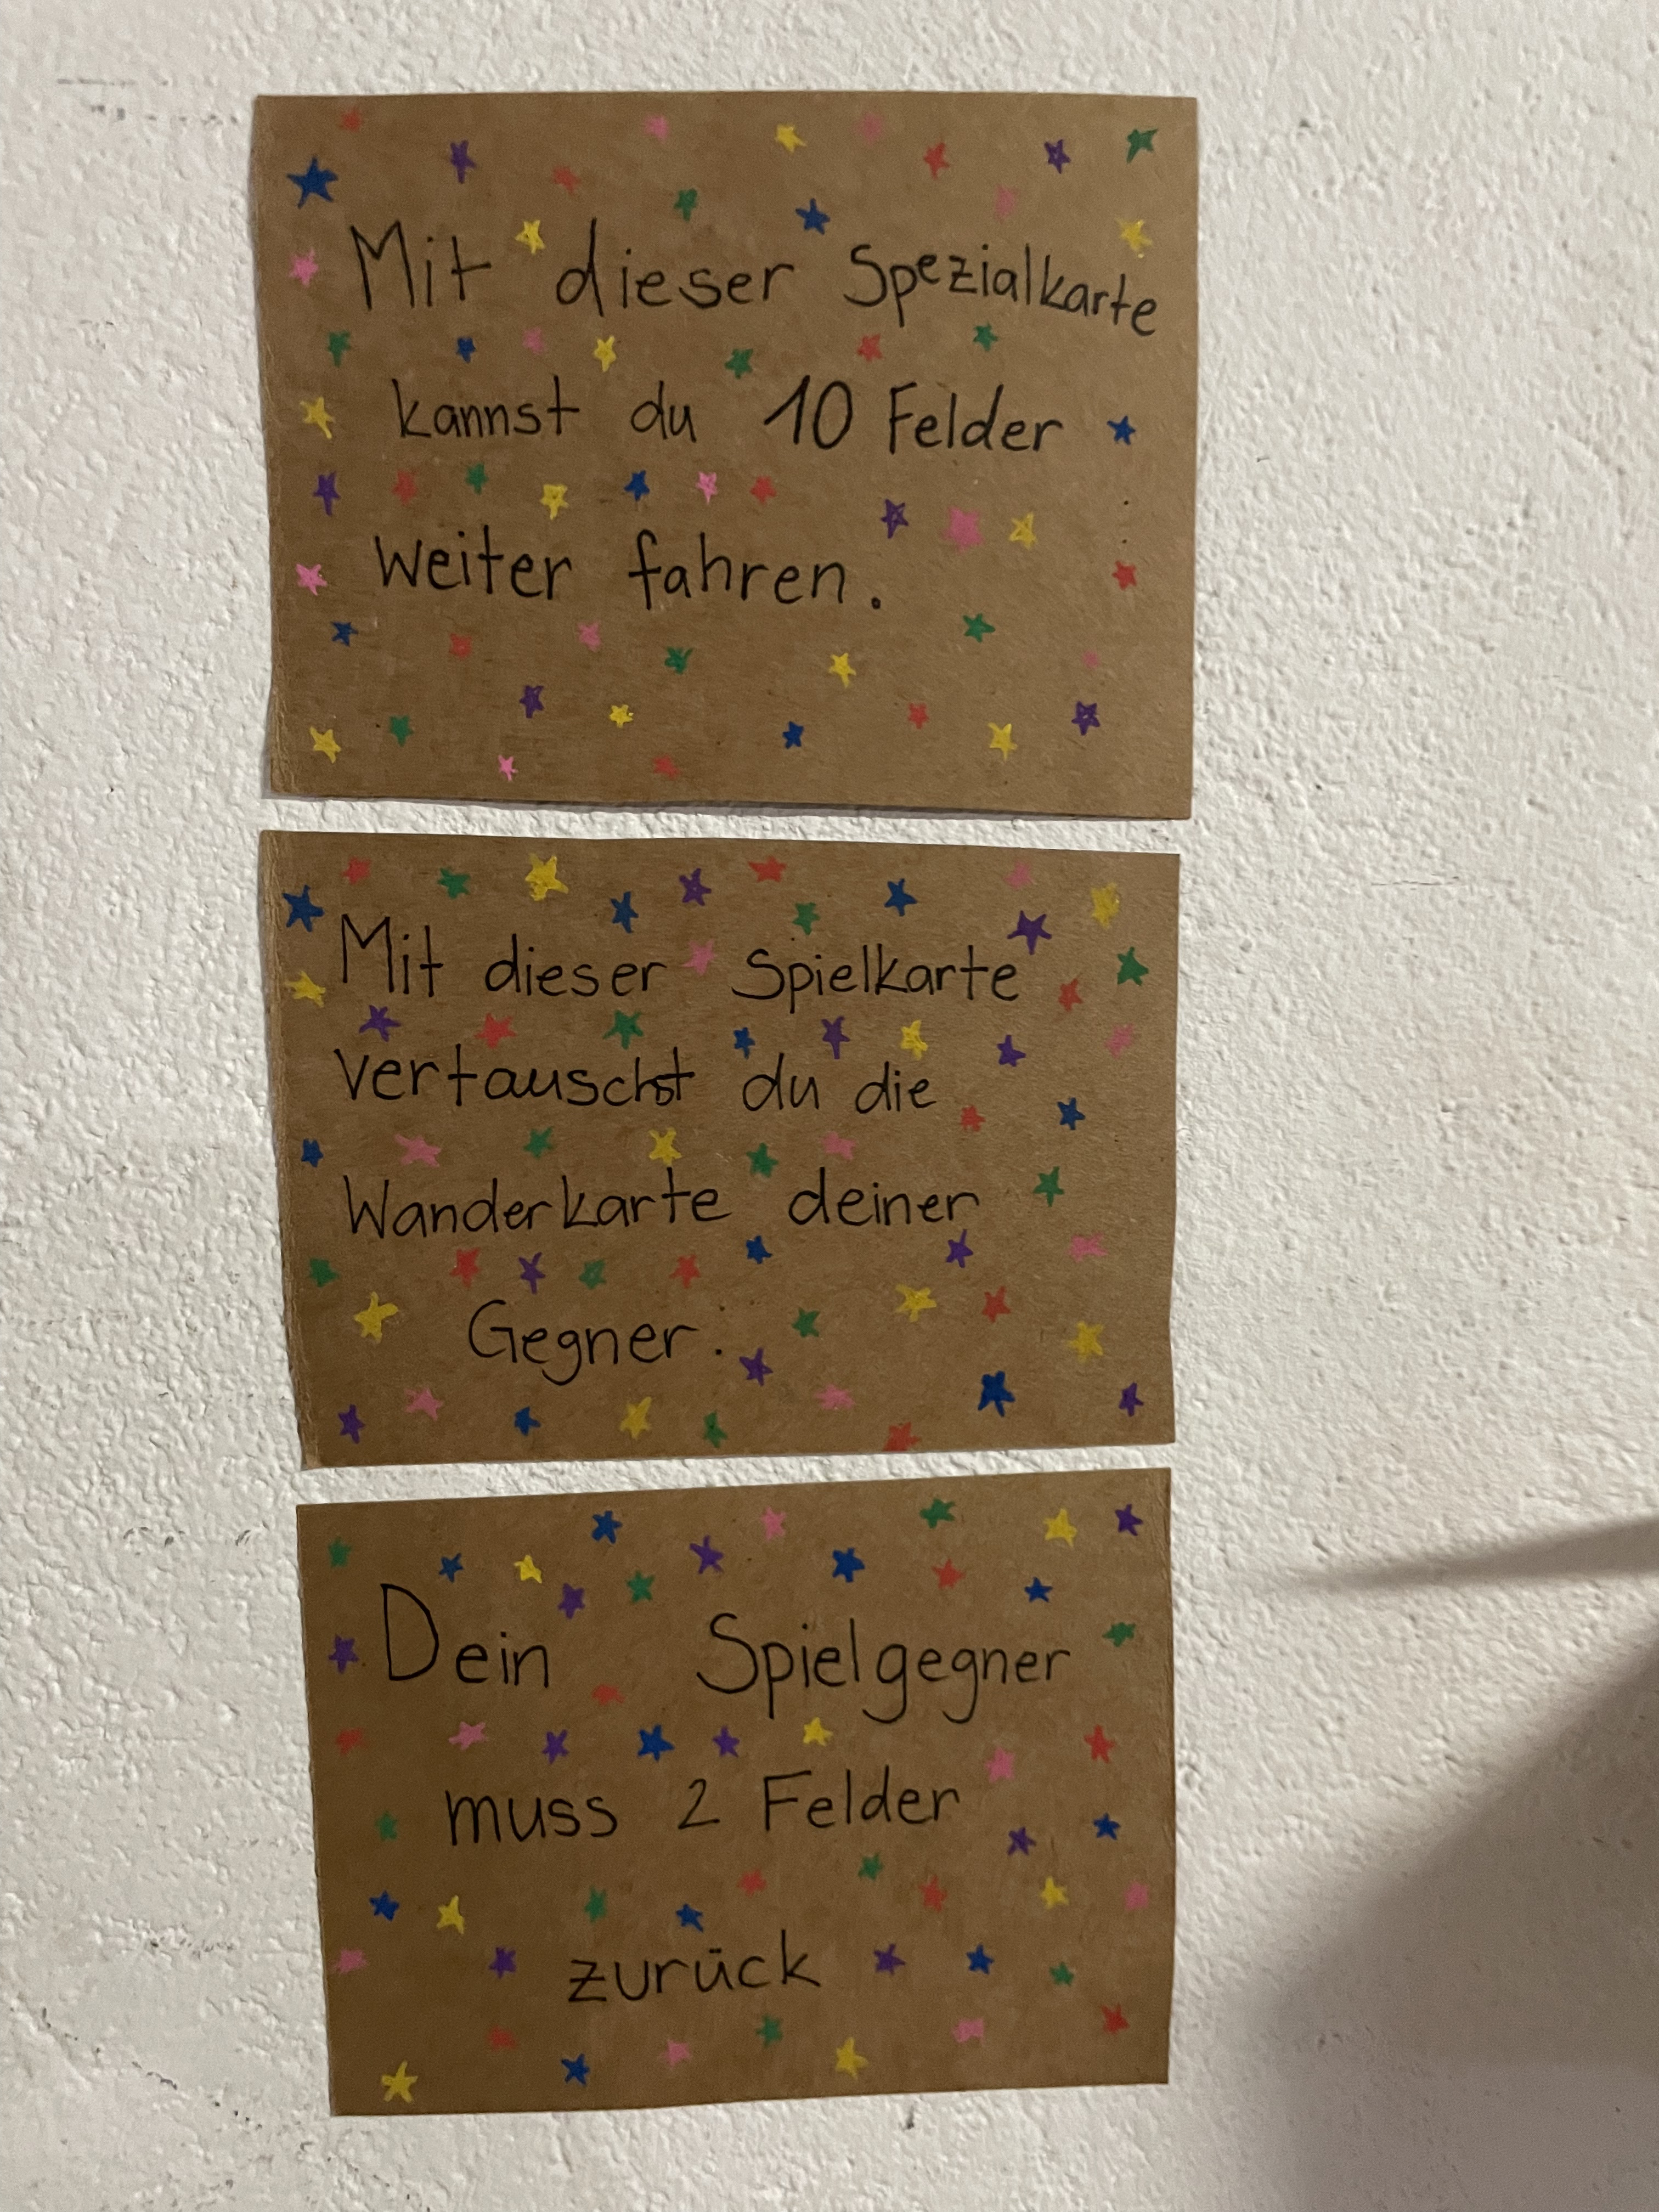 Mit dieser Spezialkarte
kannst du 10 Felder
weiter fahren.
Mit dieser Spielkarte
vertauschst du die
Wanderkarte deiner
Gegner.
Dein Spielgegner
muss 2 Felder
zurück